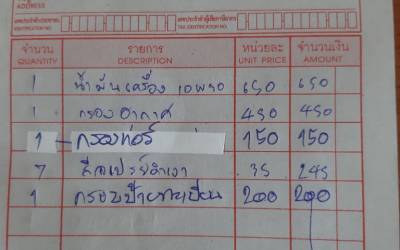 ADDRESS
เลขประจำตัวประชาชน
IDENTIFICATION NO.
เลขประจำตัวผู้เสียภาษีอากร
TAX IDENTIFICATION NO.
จำนวน รายการ หน่วยละ จำนวนเงิน
QUANTITY DESCRIPTION UNIT PRICE AMOUNT
1 น้ำมันเครื่อง 10W30 650 650
1 กรองอากาศ 450 450
1 150 150
7 สีสเปรย์ดำเงา 35 245
1 กรอบป้ายทะเบียน 200 200